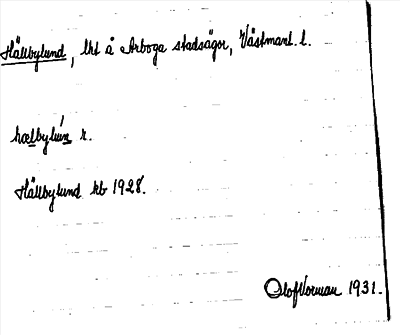 Hällbylund, lht å Arboga stadsägor, Västmanl. l.
hælbylún r.
Hällbylund kb 1928.
Olof Norman 1931.